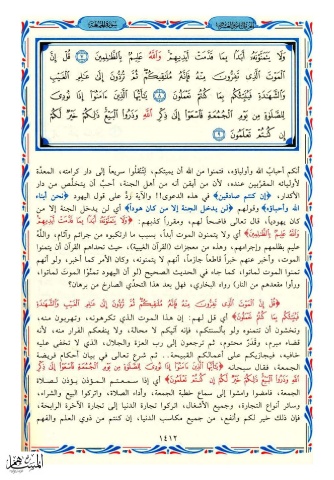 وَلَا يَتَمَنَّوْنَهُۥٓ أَبَدًۢا بِمَا قَدَّمَتْ أَيْدِيهِمْ وَٱللَّهُ عَلِيمٌۢ بِٱلظَّٰلِمِينَ ٧ قُلْ إِنَّ
ٱلْمَوْتَ ٱلَّذِى تَفِرُّونَ مِنْهُ فَإِنَّهُۥ مُلَٰقِيكُمْ ثُمَّ تُرَدُّونَ إِلَىٰ عَٰلِمِ ٱلْغَيْبِ
وَٱلشَّهَٰدَةِ فَيُنَبِّئُكُم بِمَا كُنتُمْ تَعْمَلُونَ ٨ يَٰٓأَيُّهَا ٱلَّذِينَ ءَامَنُوٓا۟ إِذَا نُودِىَ
لِلصَّلَوٰةِ مِن يَوْمِ ٱلْجُمُعَةِ فَٱسْعَوْا۟ إِلَىٰ ذِكْرِ ٱللَّهِ وَذَرُوا۟ ٱلْبَيْعَ ذَٰلِكُمْ خَيْرٌ لَّكُمْ
إِن كُنتُمْ تَعْلَمُونَ ٩
أنكم أحباب الله وأولياؤه، فتمنوا من الله أن يميتكم، لتُنقلوا سريعاً إلى دار كرامته، المعدَّة
لأوليائه المقربين عنده، لأن من أيقن أنه من أهل الجنة، أحبَّ أن يتخلَّص من دار
الأكدار، ﴿إن كنتم صادقين﴾ في هذه الدعوى!! والآية ردٌّ على قول اليهود ﴿نحن أبناء
الله وأحباؤه﴾ وقولهم ﴿لن يدخل الجنة إلا من كان هوداً﴾ أي لن يدخل الجنة إلا من
كان يهودياً، قال تعالى فاضحاً لهم، ومقرراً كذبهم: ﴿وَلَا يَتَمَنَّوْنَهُۥٓ أَبَدًۢا بِمَا قَدَّمَتْ أَيْدِيهِمْ
وَٱللَّهُ عَلِيمٌۢ بِٱلظَّٰلِمِينَ﴾ أي ولا يتمنون الموت أبداً، بسبب ما ارتكبوه من جرائم وآثام، والله
عليم بظلمهم وإجرامهم، وهذه من معجزات (القرآن الغيبية)، حيث تحداهم القرآن أن يتمنوا
الموت، وأخبر عنهم خبراً قاطعاً جازماً، أنهم لا يتمنونه، وكان الأمر كما أخبر، ولو أنهم
تمنوا الموت لماتوا، كما جاء في الحديث الصحيح (لو أن اليهود تمنَّوا الموت لماتوا،
ورأوا مقعدهم من النار) رواه البخاري، فهل بعد هذا التحدِّي الصارخ من برهان؟
﴿قُلْ إِنَّ ٱلْمَوْتَ ٱلَّذِى تَفِرُّونَ مِنْهُ فَإِنَّهُۥ مُلَٰقِيكُمْ ثُمَّ تُرَدُّونَ إِلَىٰ عَٰلِمِ ٱلْغَيْبِ وَٱلشَّهَٰدَةِ
فَيُنَبِّئُكُم بِمَا كُنتُمْ تَعْمَلُونَ﴾ أي قل لهم: إن هذا الموت الذي تكرهونه، وتهربون منه،
وتخشون أن تتمنوه ولو بألسنتكم، فإنه آتيكم لا محالة، ولا ينفعكم الفرار منه، لأنه
قضاء مبرم، وقدَرٌ محتوم، ثم ترجعون إلى رب العزة والجلال، الذي لا تخفى عليه
خافيه، فيجازيكم على أعمالكم القبيحة.. ثم شرع تعالى في بيان أحكام فريضة
الجمعة، فقال سبحانه ﴿يَٰٓأَيُّهَا ٱلَّذِينَ ءَامَنُوٓا۟ إِذَا نُودِىَ لِلصَّلَوٰةِ مِن يَوْمِ ٱلْجُمُعَةِ فَٱسْعَوْا۟ إِلَىٰ ذِكْرِ
ٱللَّهِ وَذَرُوا۟ ٱلْبَيْعَ ذَٰلِكُمْ خَيْرٌ لَّكُمْ إِن كُنتُمْ تَعْلَمُونَ﴾ أي إذا سمعتم المؤذن يؤذن لصلاة
الجمعة، فامضوا وامشوا إلى سماع خطبة الجمعة، وأداء الصلاة، واتركوا البيع والشراء،
وسائر أنواع التجارة، وجميع الأشغال، اتركوا تجارة الدنيا إلى تجارة الآخرة الرابحة،
فإن ذلك خير لكم وأنفع، من جميع مكاسب الدنيا، إن كنتم من ذوي العلم والفهم
١٤١٢